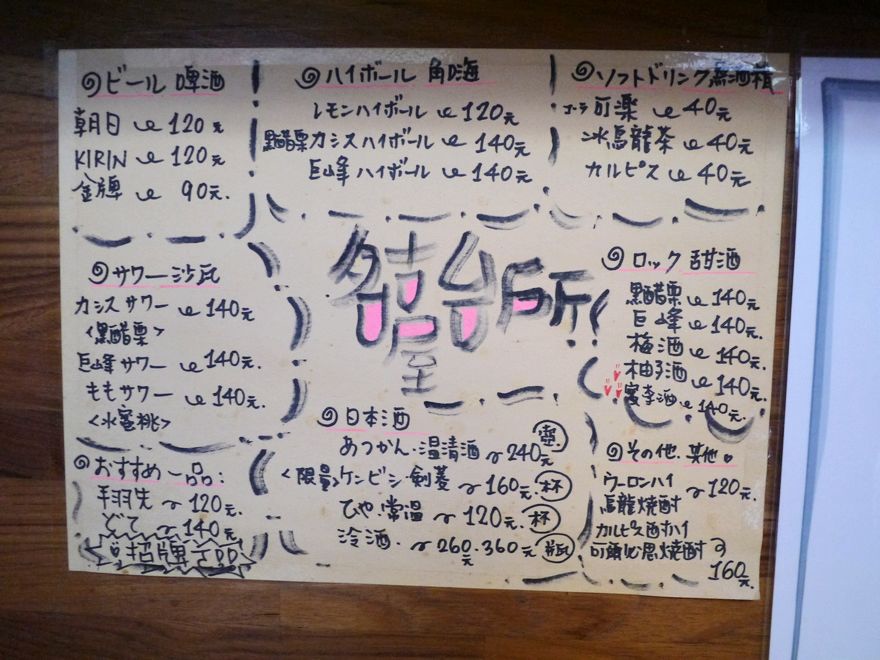 ビール 啤酒
朝日 120元
KIRIN 120元
金牌 90元.
ハイボール 角嗨
レモンハイボール 120元
黒醋栗カシスハイボール 140元
巨峰ハイボール 140元
ソフトドリンク 無酒精
コーラ 可楽 40元
冰烏龍茶 40元
カルピス 40元
サワー 沙瓦
カシスサワー 140元
<黒醋栗>
巨峰サワー 140元.
ももサワー 140元.
<水蜜桃>
台所
ロック 甜酒
黒醋栗 140元.
巨峰 140元.
梅酒 140元.
柚子酒 140元.
蜜李酒 140元.
おすすめ一品:
手羽先 120元.
どて 140元.
招牌
日本酒
あつかん・温清酒 240元 壺
<限量>ケンビシ・剣菱 160元. 杯
ひや・常温 120元. 杯
冷酒. 260元.360元 瓶
その他. 其他
ウーロンハイ 120元.
烏龍焼酎
カルピス酎ハイ
可爾必思焼酎 160元.